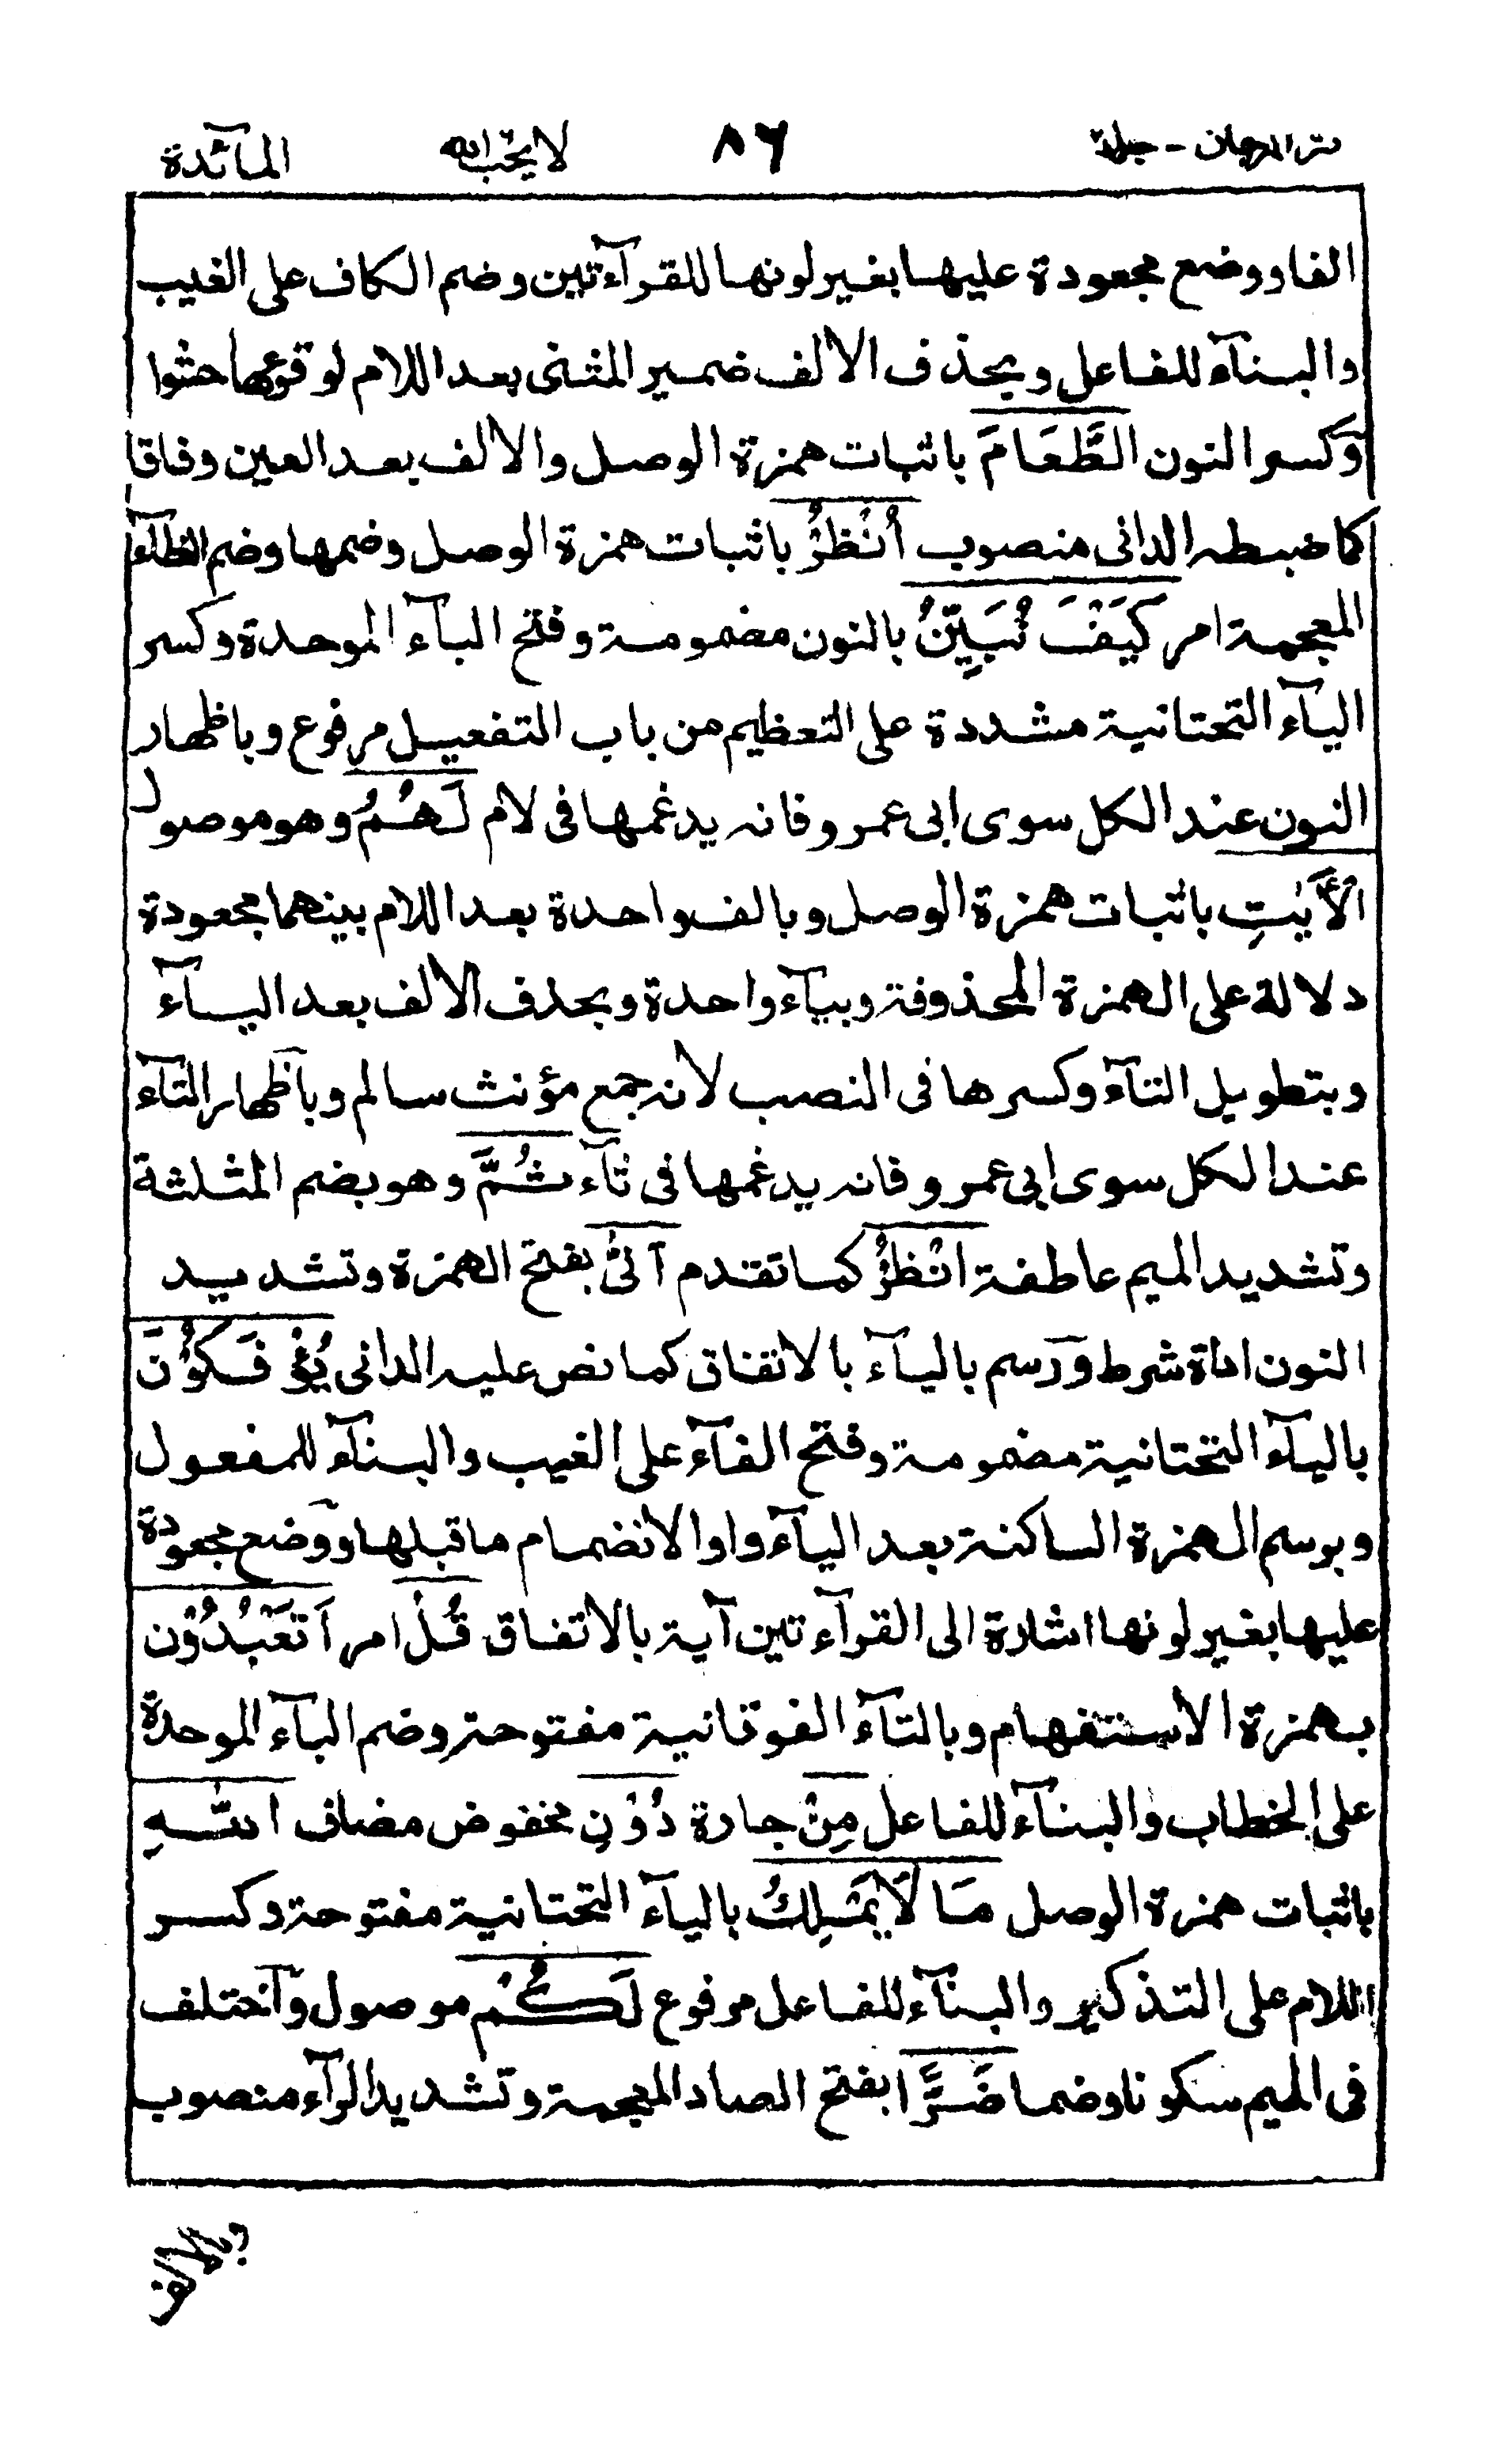 نثر المرجان - جلد ٢ ٨٦ لا يحب الله المآئدة
الفا ووضع مجعودة عليها بغير لونها للقرآءتين وضم الكاف على الغيب
والبنآء للفاعل وبحذف الالف ضمير المثنى بعد اللام لوقوعها حشوا
وكسر النون الطَّعَامَ باثبات همزة الوصل والالف بعد العين وفاقا
كما ضبطه الدانى منصوب اُنْظُرْ باثبات همزة الوصل وضمها وضم الظآء
المعجمة امر كَيْفَ نُبَيِّنُ بالنون مضمومة وفتح البآء الموحدة وكسر
اليآء التحتانية مشددة على التعظيم من باب التفعيل مرفوع وباظهار
النون عند الكل سوى ابى عمرو فانه يدغمها فى لام لَهُمُ وهو موصول
الْاٰيٰتِ باثبات همزة الوصل وبالف واحدة بعد اللام بينهما مجعودة
دلالة على الهمزة المحذوفة وبيآء واحدة وبحذف الالف بعد اليآء
وبتطويل التآء وكسرها فى النصب لانه جمع مؤنث سالم وباظهار التآء
عند الكل سوى ابى عمرو فانه يدغمها فى ثآء ثُمَّ وهو بضم المثلثة
وتشديد الميم عاطفة انْظُرْ كما تقدم اَنّٰى بفتح الهمزة وتشديد
النون اداة شرط ورسم باليآء بالاتفاق كما نص عليه الدانى يُؤْفَكُوْنَ
باليآء التحتانية مضمومة وفتح الفآء على الغيب والبنآء للمفعول
وبرسم الهمزة الساكنة بعد اليآء واوا لانضمام ما قبلها ووضع مجعودة
عليها بغير لونها اشارة الى القرآءتين آية بالاتفاق قُلْ امر اَتَعْبُدُوْنَ
بهمزة الاستفهام وبالتآء الفوقانية مفتوحة وضم البآء الموحدة
على الخطاب والبنآء للفاعل مِنْ جارة دُوْنِ مخفوض مضاف اللهِ
باثبات همزة الوصل مَا لَا يَمْلِكُ باليآء التحتانية مفتوحة وكسر
اللام على التذكير والبنآء للفاعل مرفوع لَكُمْ موصول وآختلف
فى الميم سكونا وضما ضَرًّا بفتح الضاد المعجمة وتشديد الرآء منصوب